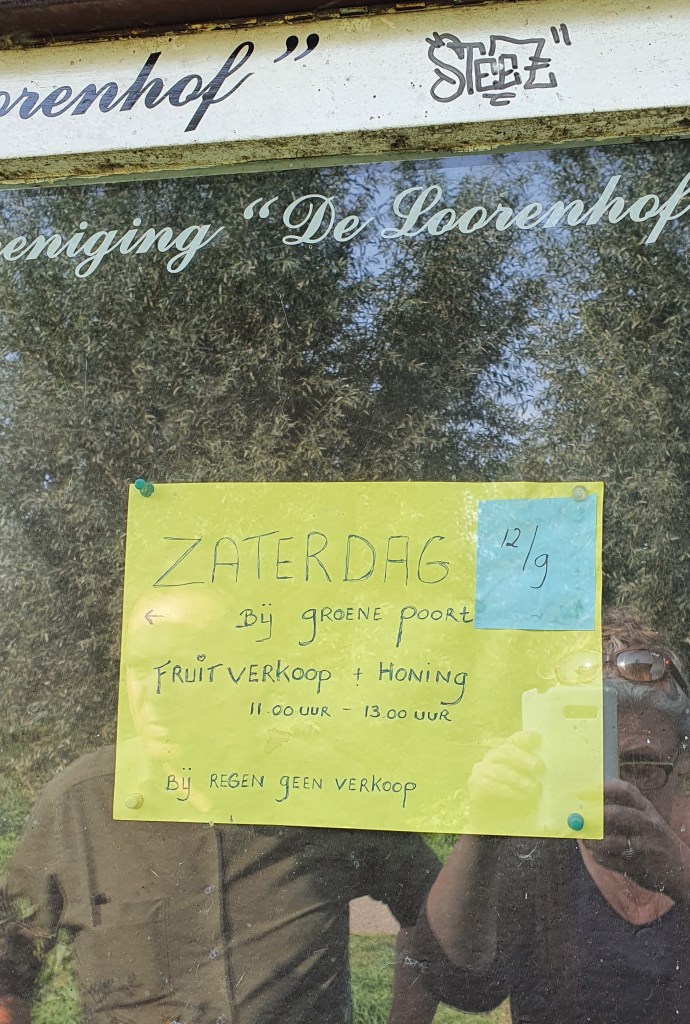 orenhof”
"STEEZ"
eeniging “De Loorenhof
ZATERDAG
12/9
← Bij groene poort
FRUITVERKOOP + HONING
11.00 UUR - 13.00 UUR
Bij REGEN GEEN VERKOOP